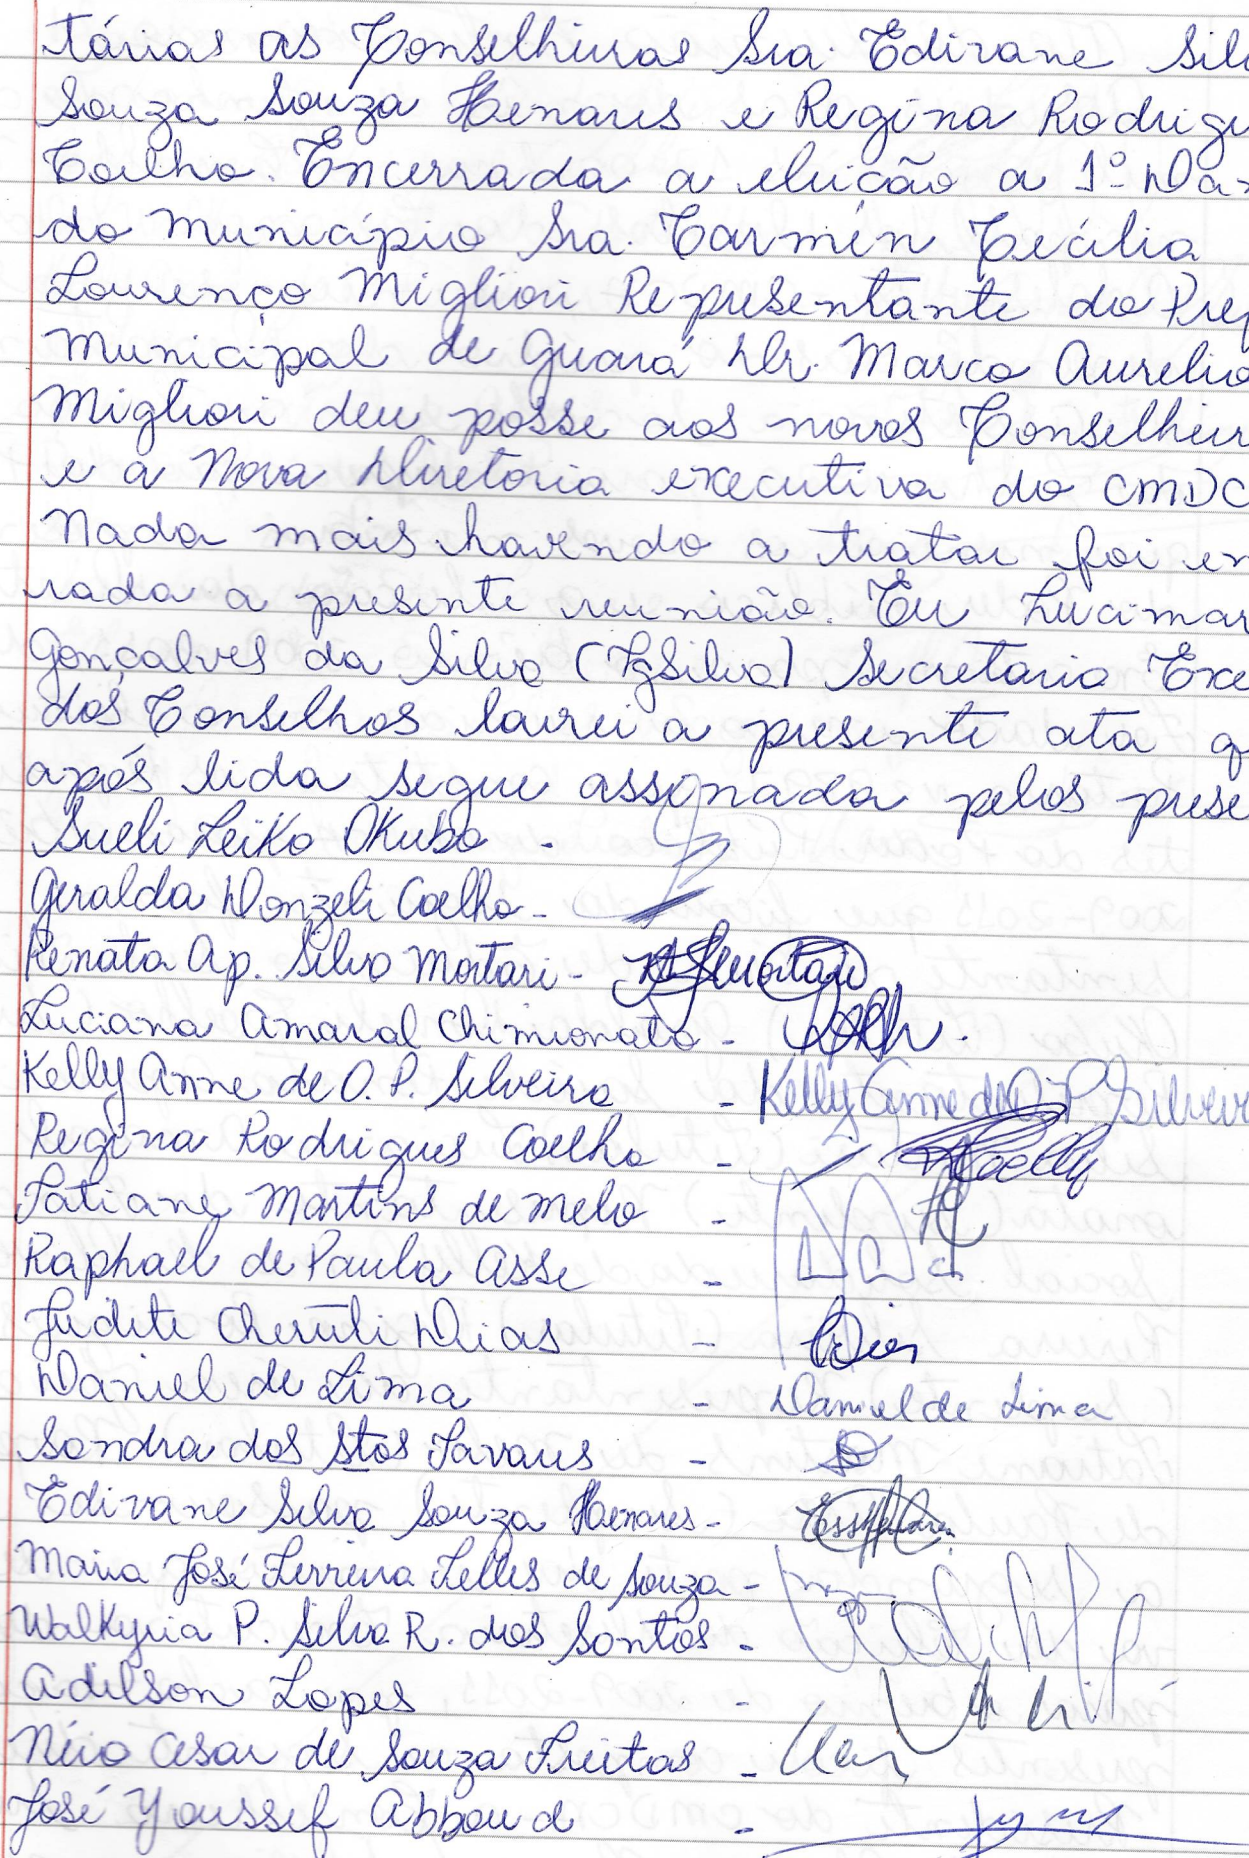 tárias as Conselheiras Sra. Edivane Sil
Souza Souza Henares e Regina Rodrigu
Coelho. Encerrada a eleição a 1ª Da
do município Sra. Carmén Cecília
Lourenço Migliori Representante do Pref
Municipal de Guará Dr. Marco Aurelio
Migliori deu posse aos novos Conselheir
e a Nova Diretoria executiva do CMDC
Nada mais havendo a tratar foi en
rada a presente reunião. Eu Lucimar
Gonçalves da Silva (LgSilva) Secretaria Exe
dos Conselhos lavrei a presente ata q
após lida segue assinada pelos prese
Sueli Leiko Okubo -
Geralda Donzeli Coelho -
Renata Ap. Silva Mortari -
Luciana Amaral Chimionato -
Kelly Anne de O. P. Silveira - Kelly Anne de O. P Silveir
Regina Rodrigues Coelho - RCoelho
Tatiane Martins de Melo -
Raphael de Paula Asse -
Judite Cheruli Dias - Dias
Daniel de Lima - Daniel de Lima
Sandra dos Stos Tavares -
Edivane Silva Souza Henares -
Maria José Ferreira Telles de Souza -
Walkyria P. Silva R. dos Santos -
Adilson Lopes -
Nério Cesar de Souza Freitas -
José Youssef Abboud -